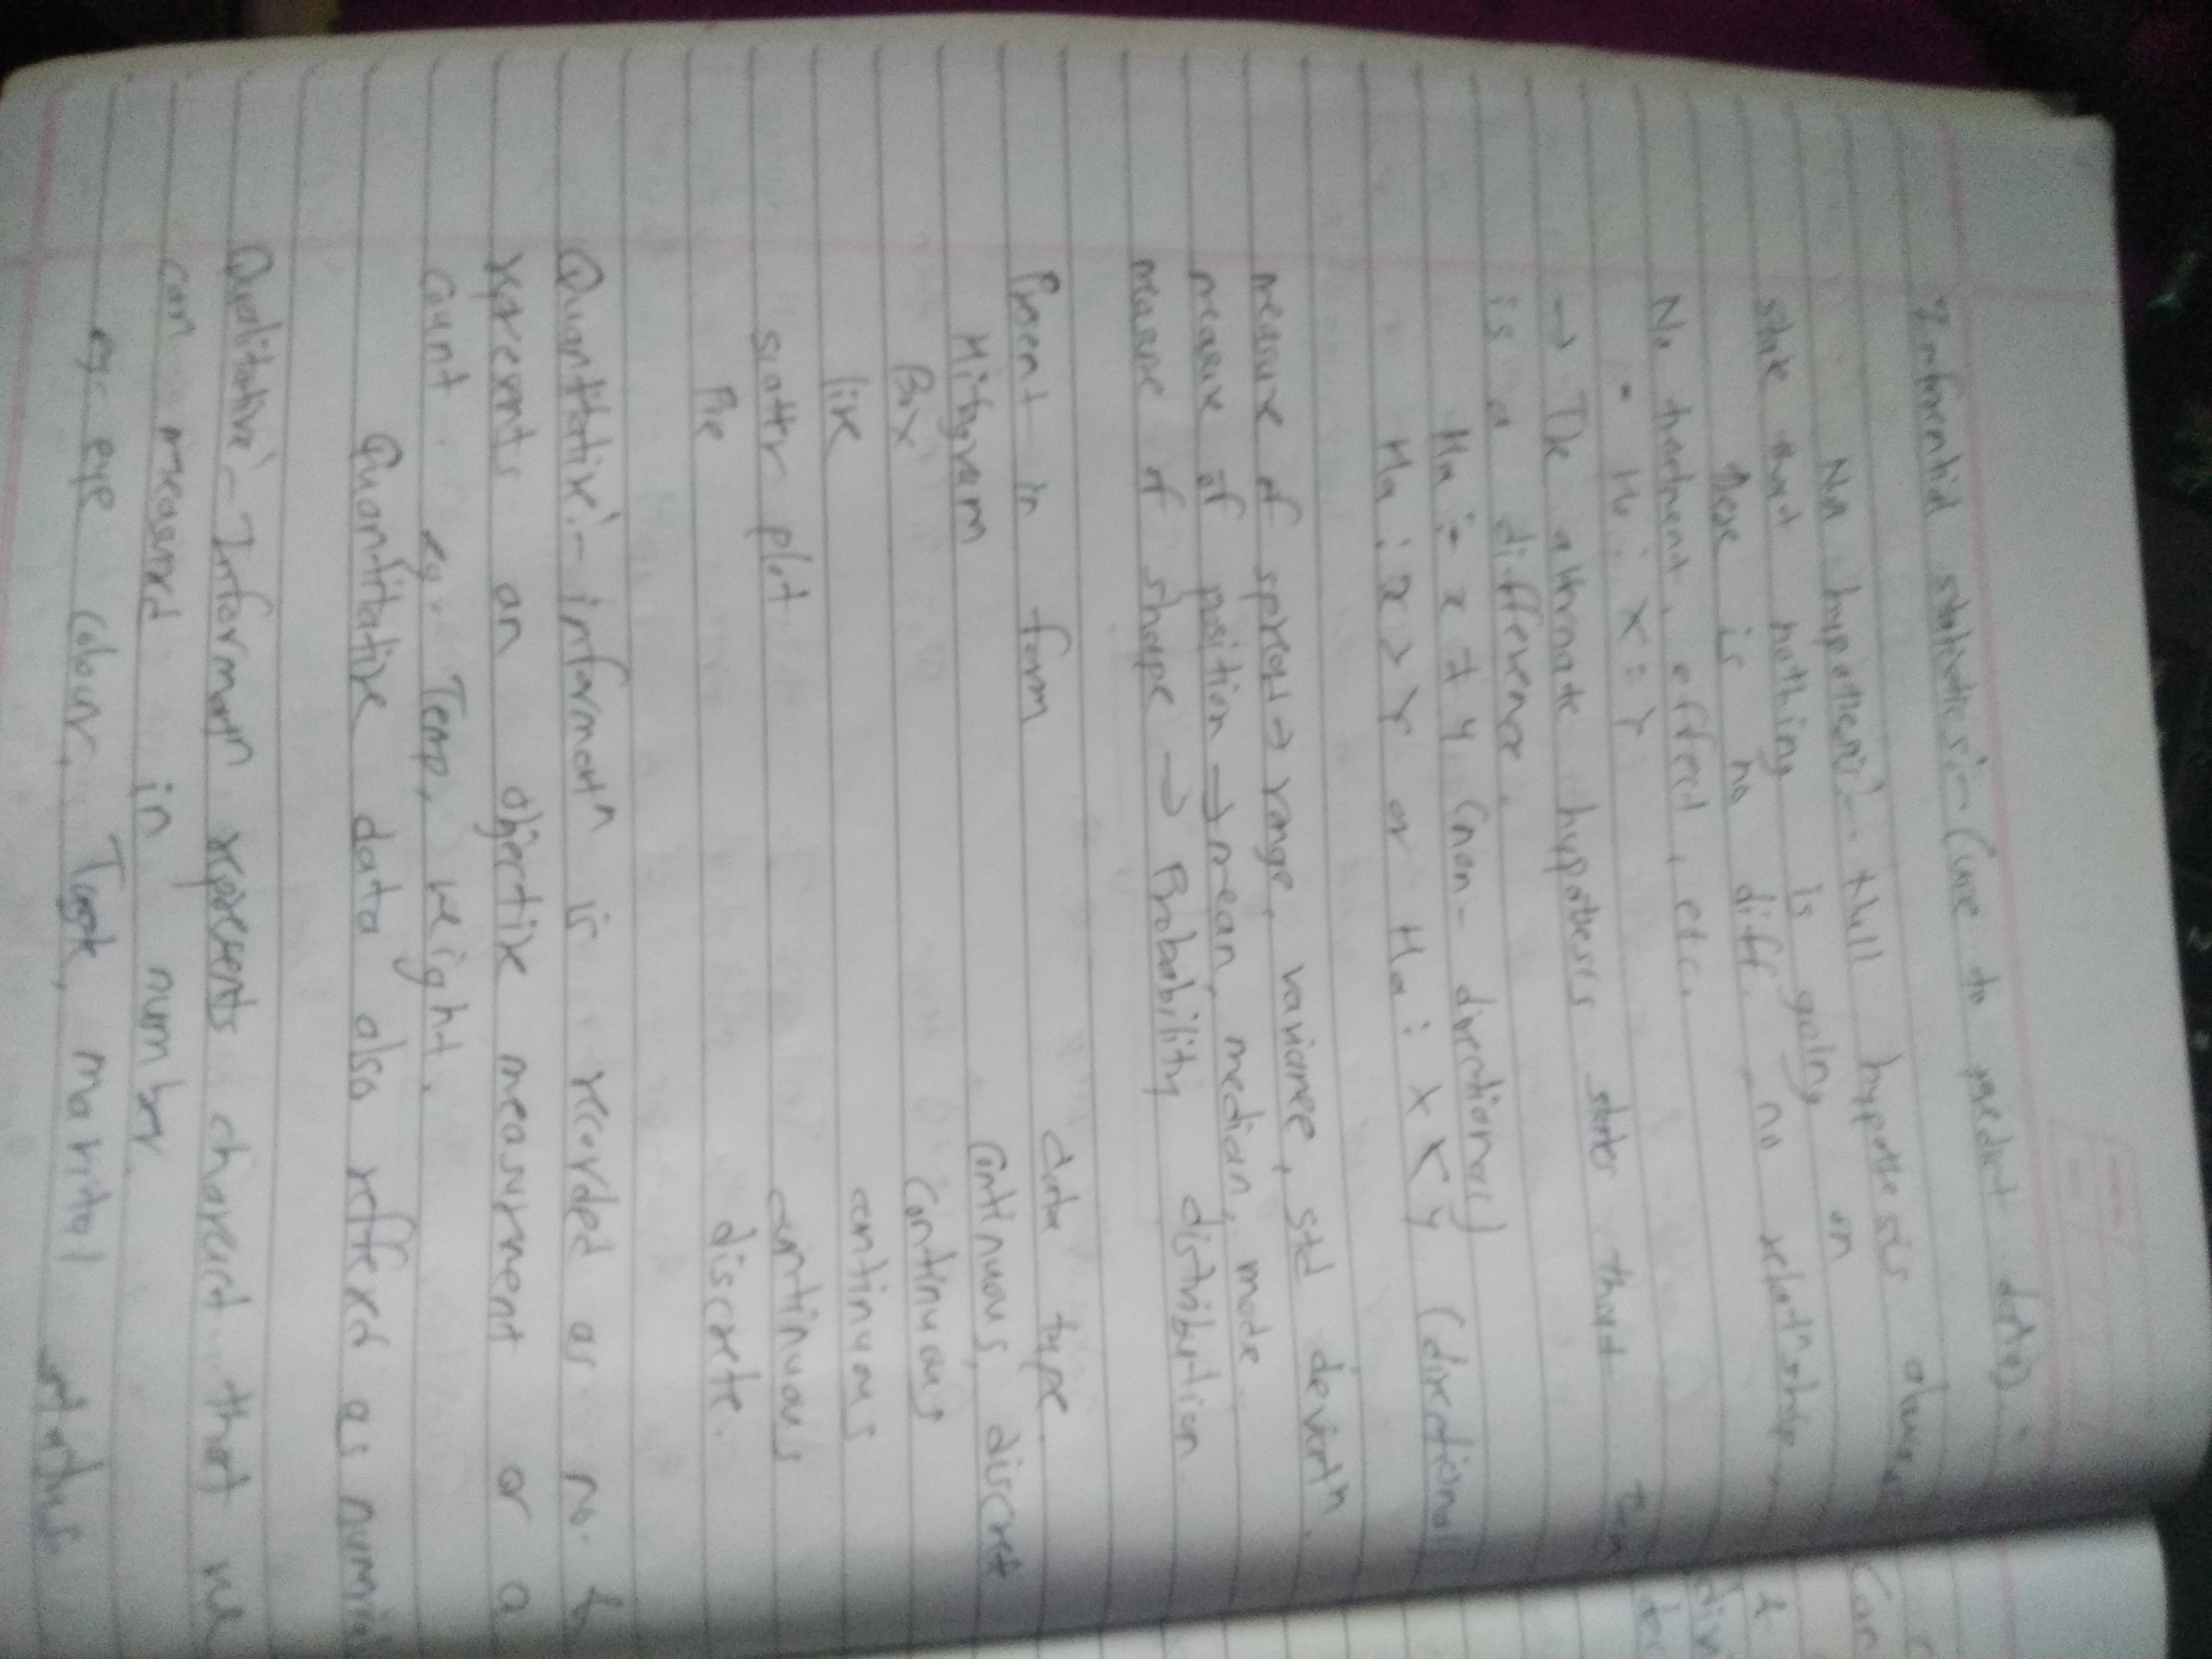 Inferential statistics:- (use to predict data).
hypothesis:- Null hypothesis always
state that nothing is going on
there is no diff., no relatnship,
No treatment, effect, etc.
= Ho : X = Y
→ The alternate hypothesis states that
is a difference.
Ha := x ≠ y (non-directional)
Ha : x > Y or Ha : X < y (directional
measure of spread → range, variance, std deviatn.
measure of position → mean, median, mode
measure of shape → Probability distribution.
Present in form data type.
Histogram Continuous, discret
Box Continuous
line continuous
scatter plot continuous
Pie discrete.
Quantitative:- informatn is recorded as no. &
represents an objective measurment or a
count. eg. Temp, weight.
Quantitative data also reffered as numeric
Qualitative:- Information represents charact. that we
can measured in number.
eg. eye colour, Taste, marital status